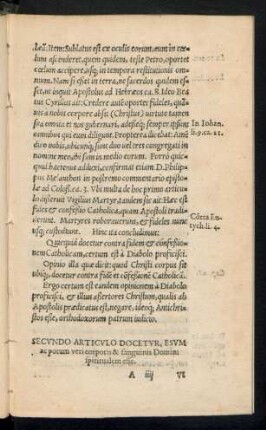 læ. Item: Sublatus est ex oculis eorum, cum in cœ-
lum ascenderet, quem quidem, teste Petro, oportet
cœlum accipere, usq; in tempora restitutionis om-
nium. Nam si esset in terra, ne sacerdos quidem es-
set, ut inquit Apostolus ad Hebræos ca. 8. Ideo Bea-
tus Cyrillus ait: Credere autē oportet fideles, quan-
uis a nobis corpore absit (Christus) virtute tamen
sua omnia et nos gubernari, adesseq; semper ipsum
omnibus qui eum diligunt. Propterea dicebat: Amē
dico vobis, ubicunq; sunt duo vel tres congregati in
nomine meo, ibi sum in medio eorum. Porrò quic-
quid hactenus adduxi, confirmat etiam D. Philip-
pus Melanthon in postremo commentario episto-
læ ad Coloss. ca. 3. Vbi multa de hoc primo articu-
lo disseruit Vigilius Martyr, tandem sic ait: Hæc est
fides et confessio Catholica, quam Apostoli tradi-
derunt, Martyres roborauerunt, et fideles nunc
usq; custodiunt. Hinc ita concludimus:
Quicquid docetur contra fidem et confessio-
nem Catholicam, certum est à Diabolo proficisci.
Opinio illa quæ dicit: quod Christi corpus sit
ubiq;, docetur contra fidē et cōfessionē Catholicā.
Ergo certum est eandem opinionem à Diabolo
proficisci, et illius assertores Christum, qualis ab
Apostolis prædicatus est, negare, ideoq; Antichri-
stos esse, orthodoxorum patrum iudicio.
SECVNDO ARTICVLO DOCETVR, ESVM
ac potum veri corporis & sanguinis Domini
spiritualem esse.
A iij VI
In Iohan.
li. 9. ca. 21.
Cōtra Eu-
tych. li. 4.